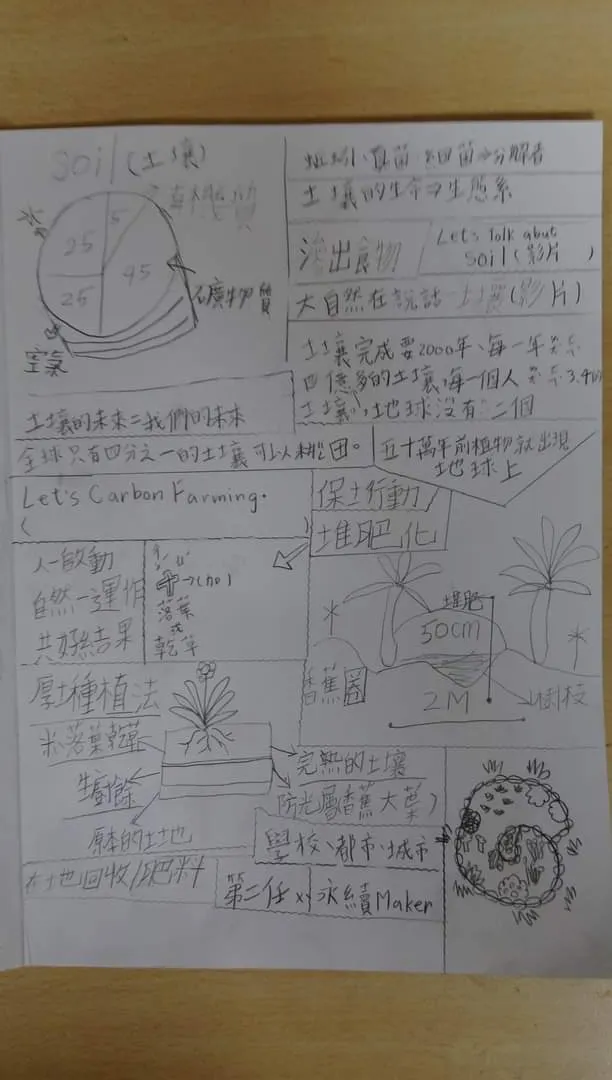 soil (土壤)
有機質
5
25
45
25
礦物質
空氣
蚯蚓、真菌 細菌⇒分解者
土壤的生命⇒生態系
食物
Let's Talk abut
soil (影片)
大自然在說話-土壤(影片)
土壤完成要2000年、每一年
四億多的土壤、每一個人 3.4
土壤、地球沒有二個
土壤的未來=我們的未來
全球只有四分之一的土壤可以耕田。
五十萬年前植物就出現
地球上
Let's Carbon Farming.
(
)
保土行動
堆肥化
人-啟動
自然-運作
共好結果
→(no)
落葉
或
乾草
堆肥
50cm
香蕉圈
2M
樹枝
厚土種植法
落葉乾草
生廚餘
原本的土地
完熟的土壤
防光層(香蕉大葉)
學校、都市、城市
在地回收/肥料
第二任 x 永續Maker